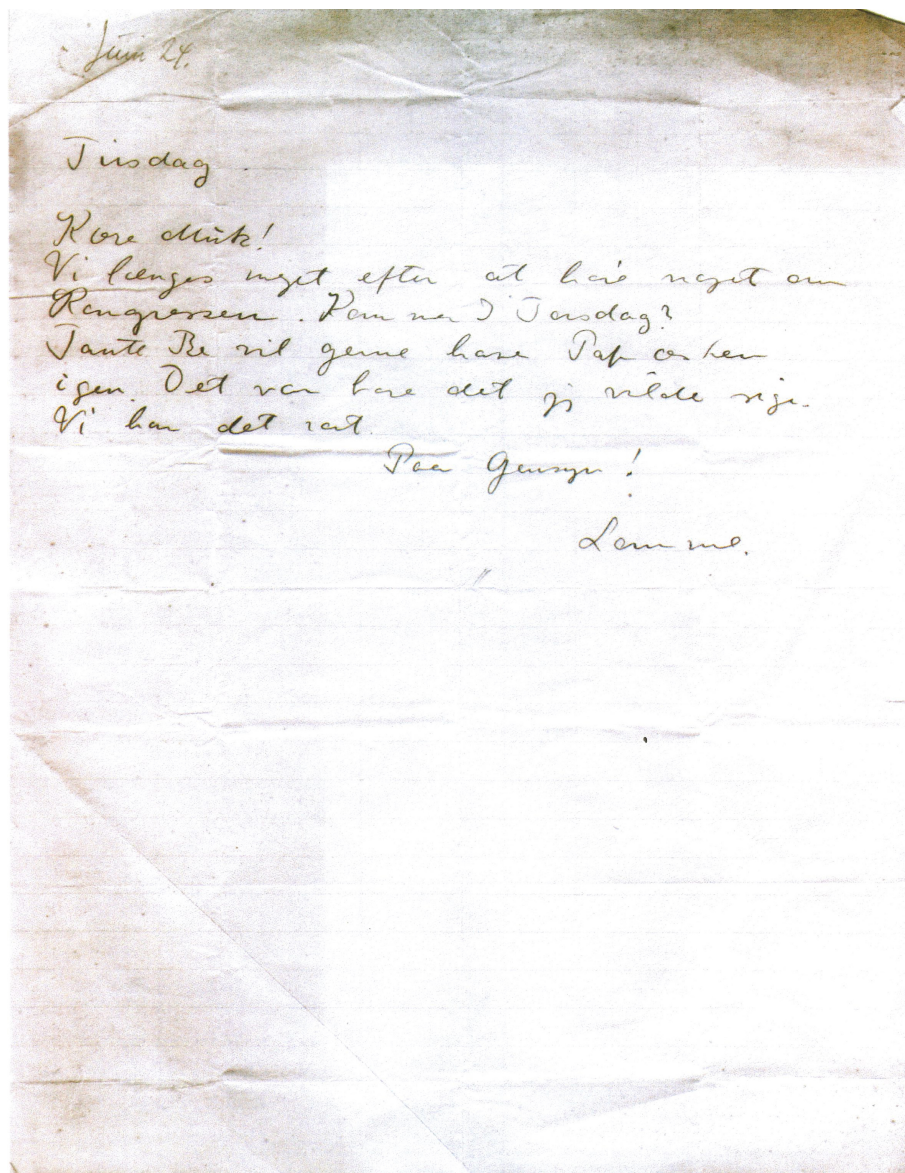 Juni 24.
Tirsdag
Kære Muk!
Vi længes meget efter at høre noget om
Kongressen. Kommer I Torsdag?
Tante Be vil gerne have Papæsken
igen. Det var bare det jeg vilde sige.
Vi har det rart.
Paa Gensyn!
Lomme.